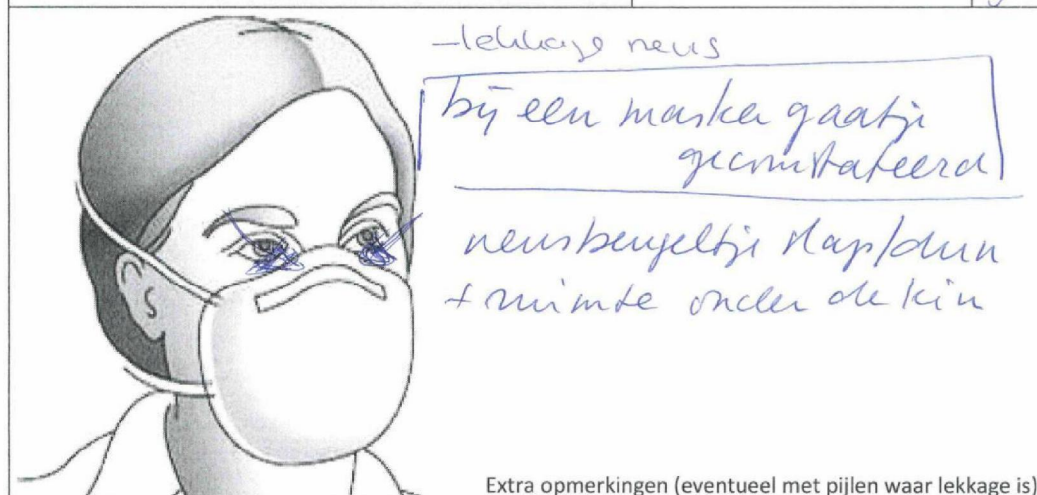 - lekkage neus
bij een masker gaatje
geconstateerd
neusbeugeltje slap/dun
+ ruimte onder de kin
Extra opmerkingen (eventueel met pijlen waar lekkage is)